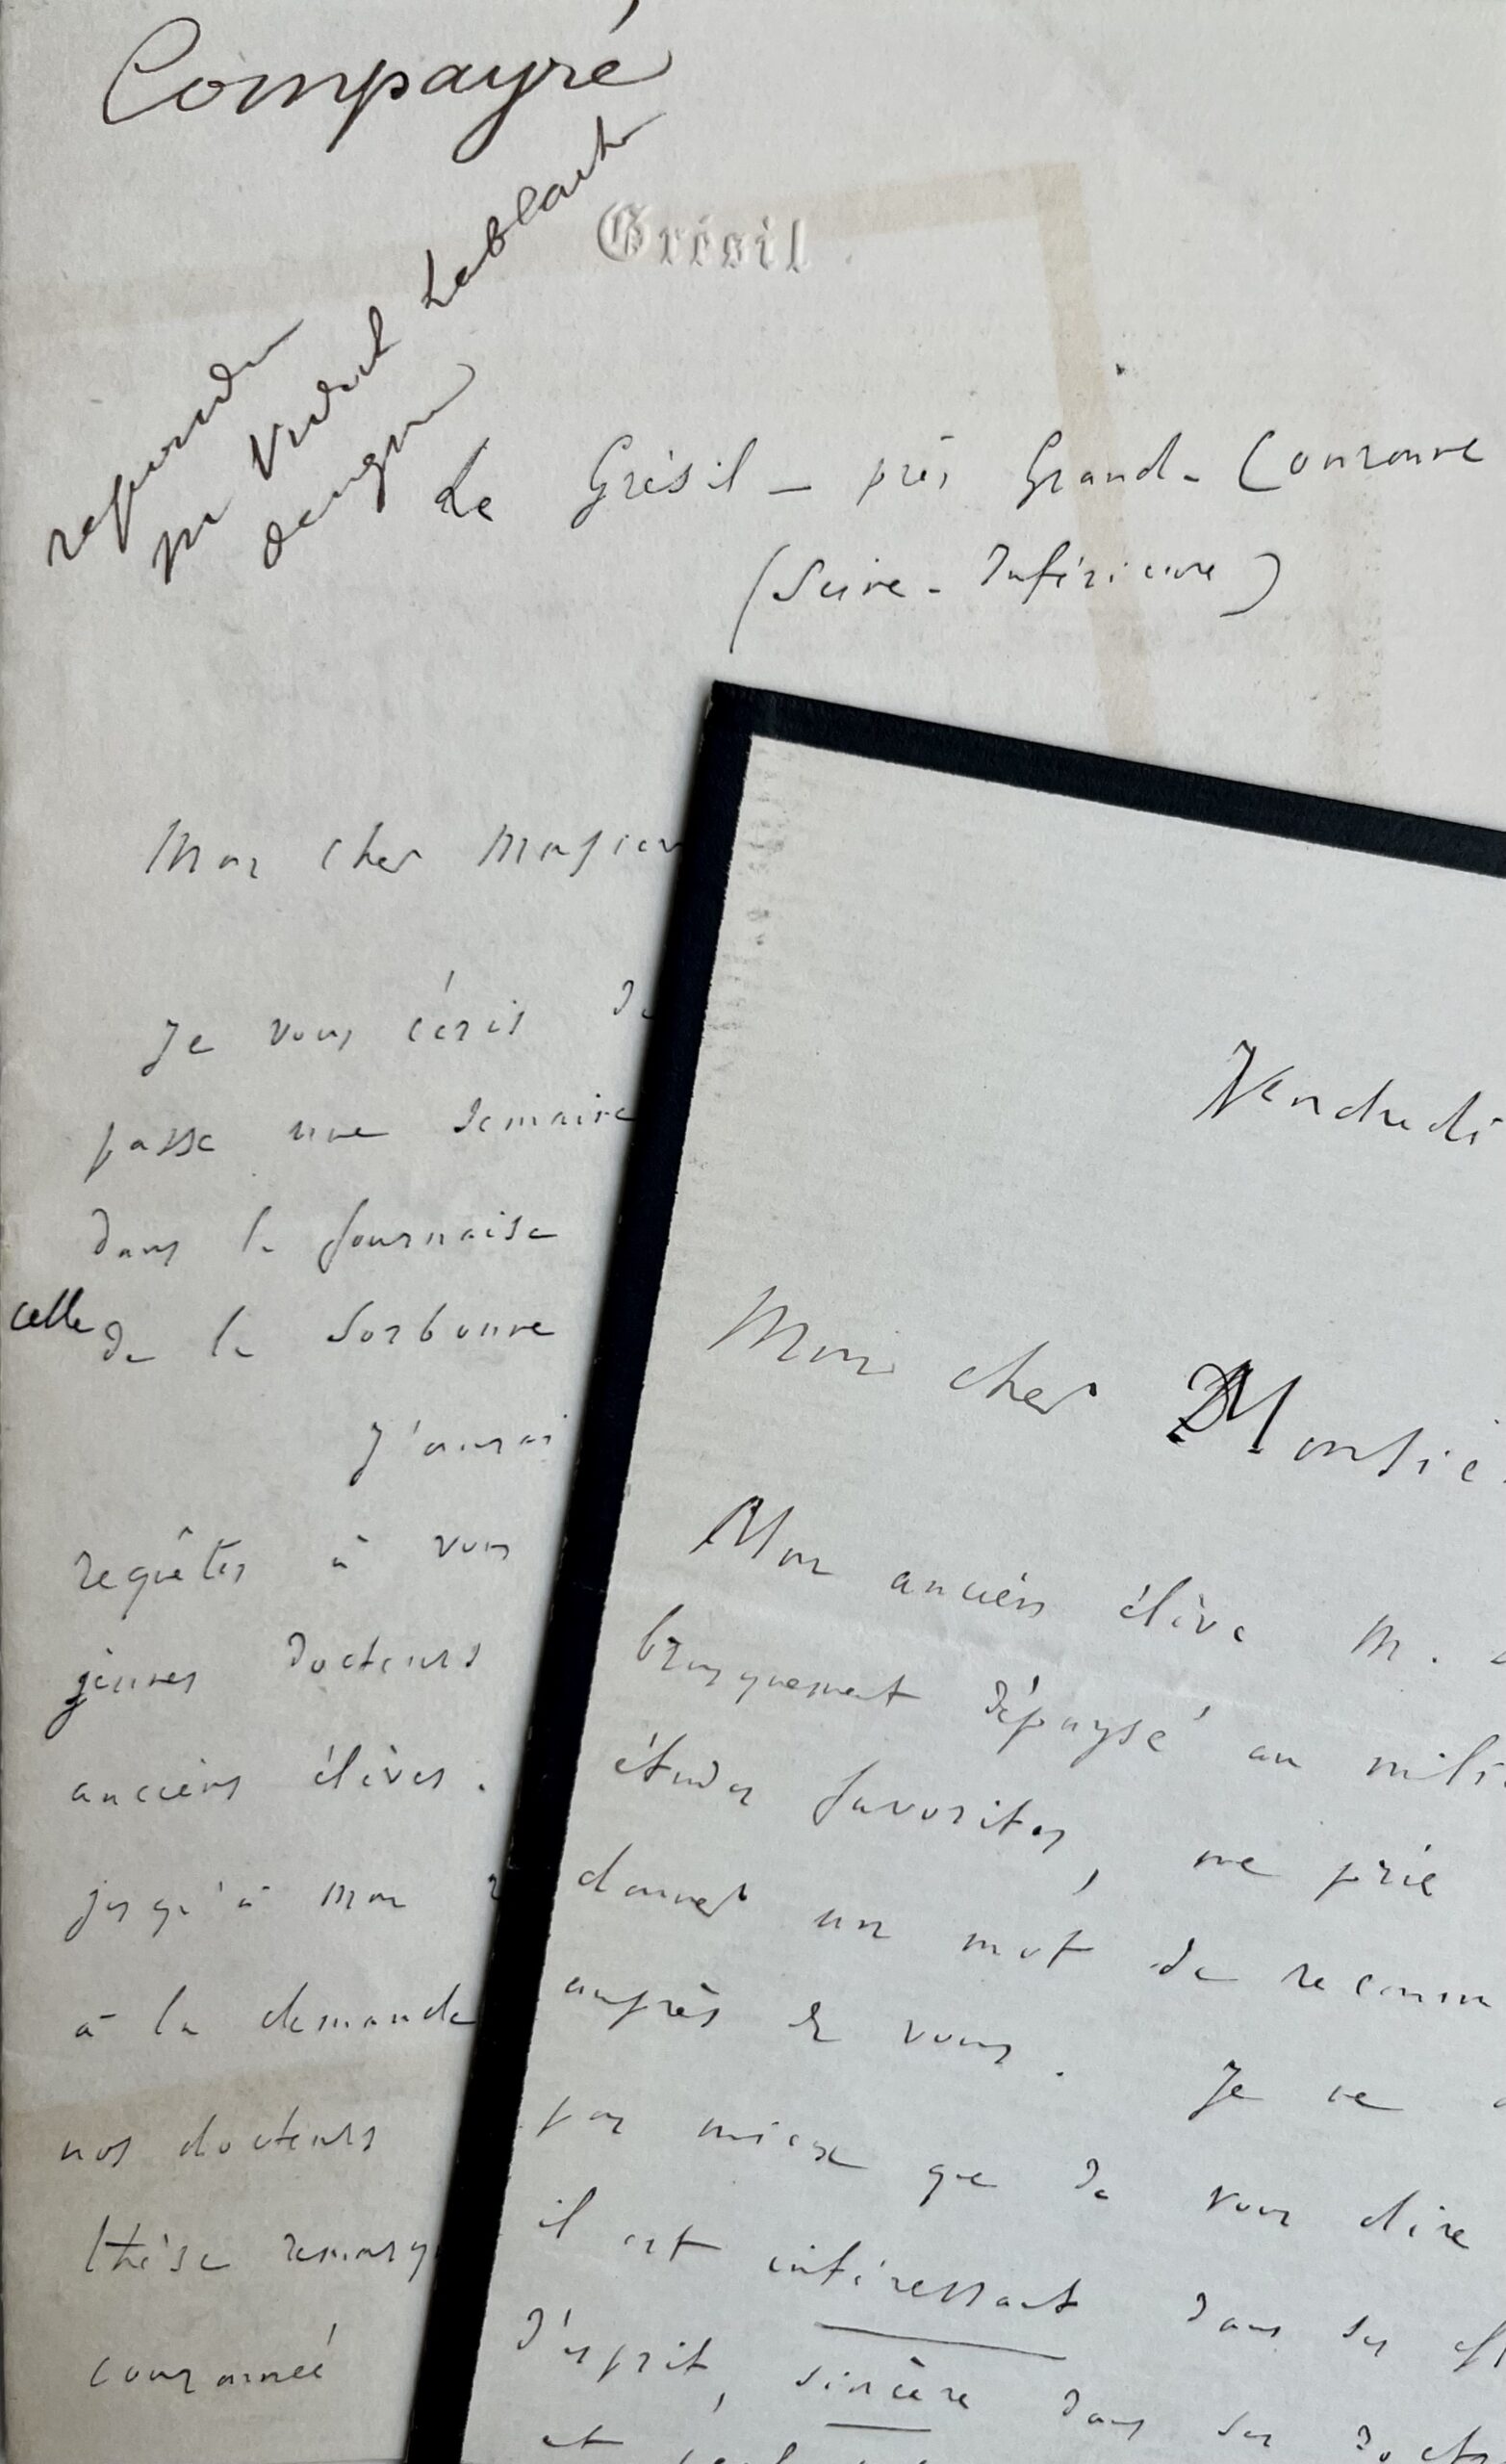 Compayré
Grésil
repondu
Vidal Lablach
Le Grésil – près Grand-Couronne
(Seine-Inférieure)
Mon cher Monsieur
Je vous écris de
passe une semaine
dans la fournaise
celle de la Sorbonne
J'aurai
requêtes à vous
jeunes docteurs
anciens élèves.
jusqu'à mon
à la demande
nos docteurs
thèse remarq
couronnée
Vendredi
Mon cher Monsie
Mon ancien élève M.
brusquement dépaysé au milie
études favorites, me prie
donner un mot de recomm
auprès de vous. Je ne
pas mieux que de vous dire
il est intéressant dans ses
d'esprit, sincère dans ses
et